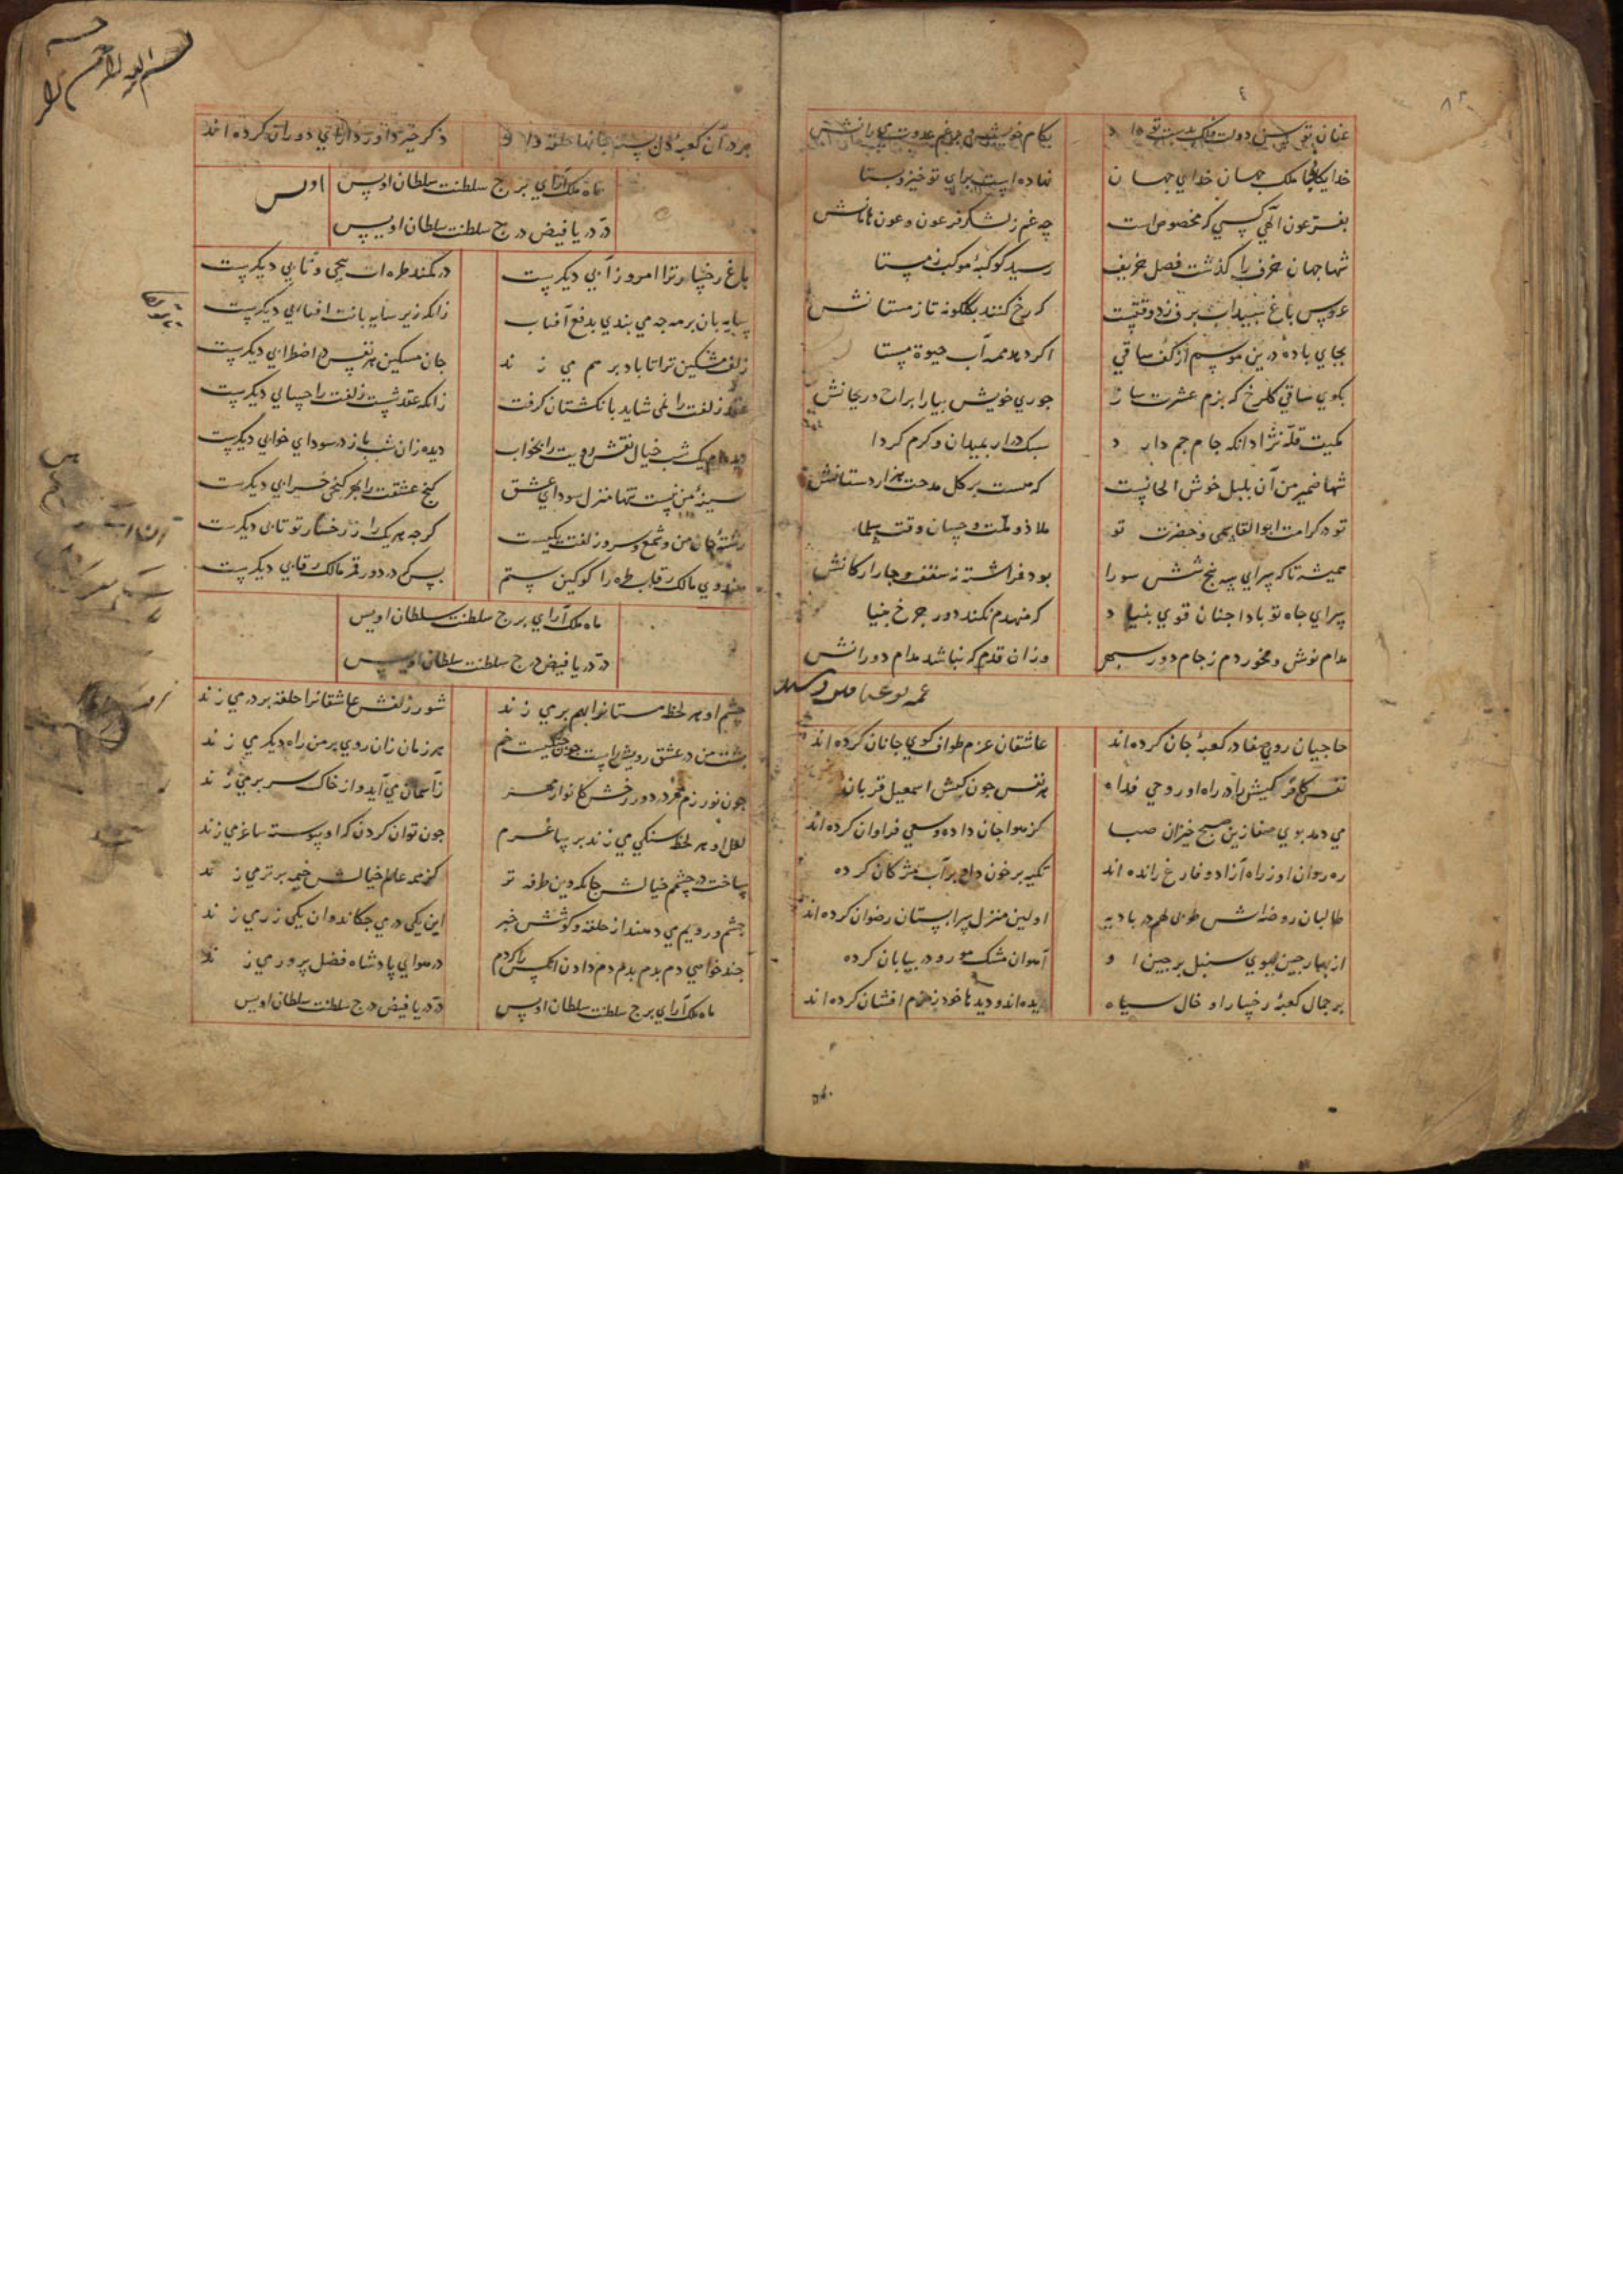 خدایکانا ملک جهان خدای جهان
نهاده است برای تو خیز و بستا
بفر عون الهی کسی که مخصوص است
چه غم ز لشکر فرعون و عون هامانش
شها جهان خرف را گذشت فصل خریف
رسید کوکبهٔ موکب زمستا
عروس باغ سپیداب برف زد وقتیست
که رخ کنند بگلگونه تاز مستانش
بجای باده درین موسم از کف ساقی
اگر دهد همه آب حیوة مستا
بگوی ساقی گلرخ که بزم عشرت ساز
چو روی خویش بیارا براح و ریحانش
کمیت قله نژاد انکه جام جم دارد
سبک درار بمیدان و گرم گردا
شها ضمیر من آن بلبل خوش الحانیست
که هست بر گل مدحت هزار دستانش
تو در کرامت ابوالقاسمی و حضرت تو
ملاذ و ملت و حسان وقت سلما
همیشه تا که سرای سه پنج شش سو را
بود فراشته نه سقف و چار ارکانش
سرای جاه تو بادا چنان قوی بنیاد
که منهدم نکند دور چرخ بنیا
مدام نوش و مخور دم ز جام دور سپهر
وزان قدم که نباشد مدام دورانش
حاجیان روی صفا در کعبهٔ جان کرده اند
عاشقان عزم طواف کوی جانان کرده اند
نفس کافر کیش را در راه او روحی فداه
هر نفس چون کیش اسمعیل قربان
می دمد بوی صفا زین صبح خیزان صبا
کز هوا جان داده و سعی فراوان کرده اند
ره روان او ز راه آزاد و فارغ رانده اند
تکیه بر خون دل و بر آب مژگان کرده
طالبان روضه اش طوبی لهم در بادیه
اولین منزل سرابستان رضوان کرده اند
از بهار چین ببوی سنبل پرچین او
آهوان مشک مو رو در بیابان کرده
بر جمال کعبهٔ رخسار او خال سیاه
دیده اند و دیدها خود زمزم افشان کرده اند
بر در آن کعبهٔ دل بسته جانها حلقه دار و
ذکر خیر داور دارای دوران کرده اند
ماه ملک آرای برج سلطنت سلطان اویس
در دریا فیض درج سلطنت سلطان اویس
باغ رخسار ترا امروز آبی دیگرست
در کمند طره ات پیچی و تابی دیگرست
سایه بان بر مه چه می بندی بدفع آفتاب
زانکه زیر سایه بانت آفتابی دیگرست
زلف مشکین ترا تا باد بر هم می زند
جان مسکین هر نفس در اضطرابی دیگرست
عقد زلفت را نمی شاید بانگشتان گرفت
زانکه عقد شست زلفت را حسابی دیگرست
دیده ام یک شب خیال نقش رویت را بخواب
دیده زان شب باز در سودای خوابی دیگرست
سینهٔ من نیست تنها منزل سودای عشق
گنج عشقت را بهر کنجی خرابی دیگرست
رشتهٔ جان من و شمع و سر زلفت یکیست
گرچه هر یک را ز رخسار تو تابی دیگرست
هندوی مالک رقاب طره را گو کین ستم
بس کن در دور قمر مالک رقابی دیگرست
ماه ملک آرای برج سلطنت سلطان اویس
در دریا فیض درج سلطنت سلطان اویس
چشم او هر لحظه مستانرا بهم بر می زند
شور زلفش عاشقانرا حلقه بر در می زند
پشت من در عشق رویش راست چون چنگیست خم
هر زمان زان روی بر من راه دیگر می زند
زآسمان می آید و از خاک سر بر می زند
لعل او هر لحظه سنگی می زند بر ساغرم
چون توان کردن که او پیوسته ساغر می زند
ساخت در چشمم خیالش جا که وین طرفه تر
کز همه عالم خیالش خیمه بر تر می زند
چشم و رویم می دهند از حلقه و گوشش خبر
این یکی در می چکاند وان یکی زر می زند
چند خواهی دم بدم بدم دم دادن آنکس را که دم
در هوای پادشاه فضل پرور می زند
ماه ملک آرای برج سلطنت سلطان اویس
در دریا فیض درج سلطنت سلطان اویس